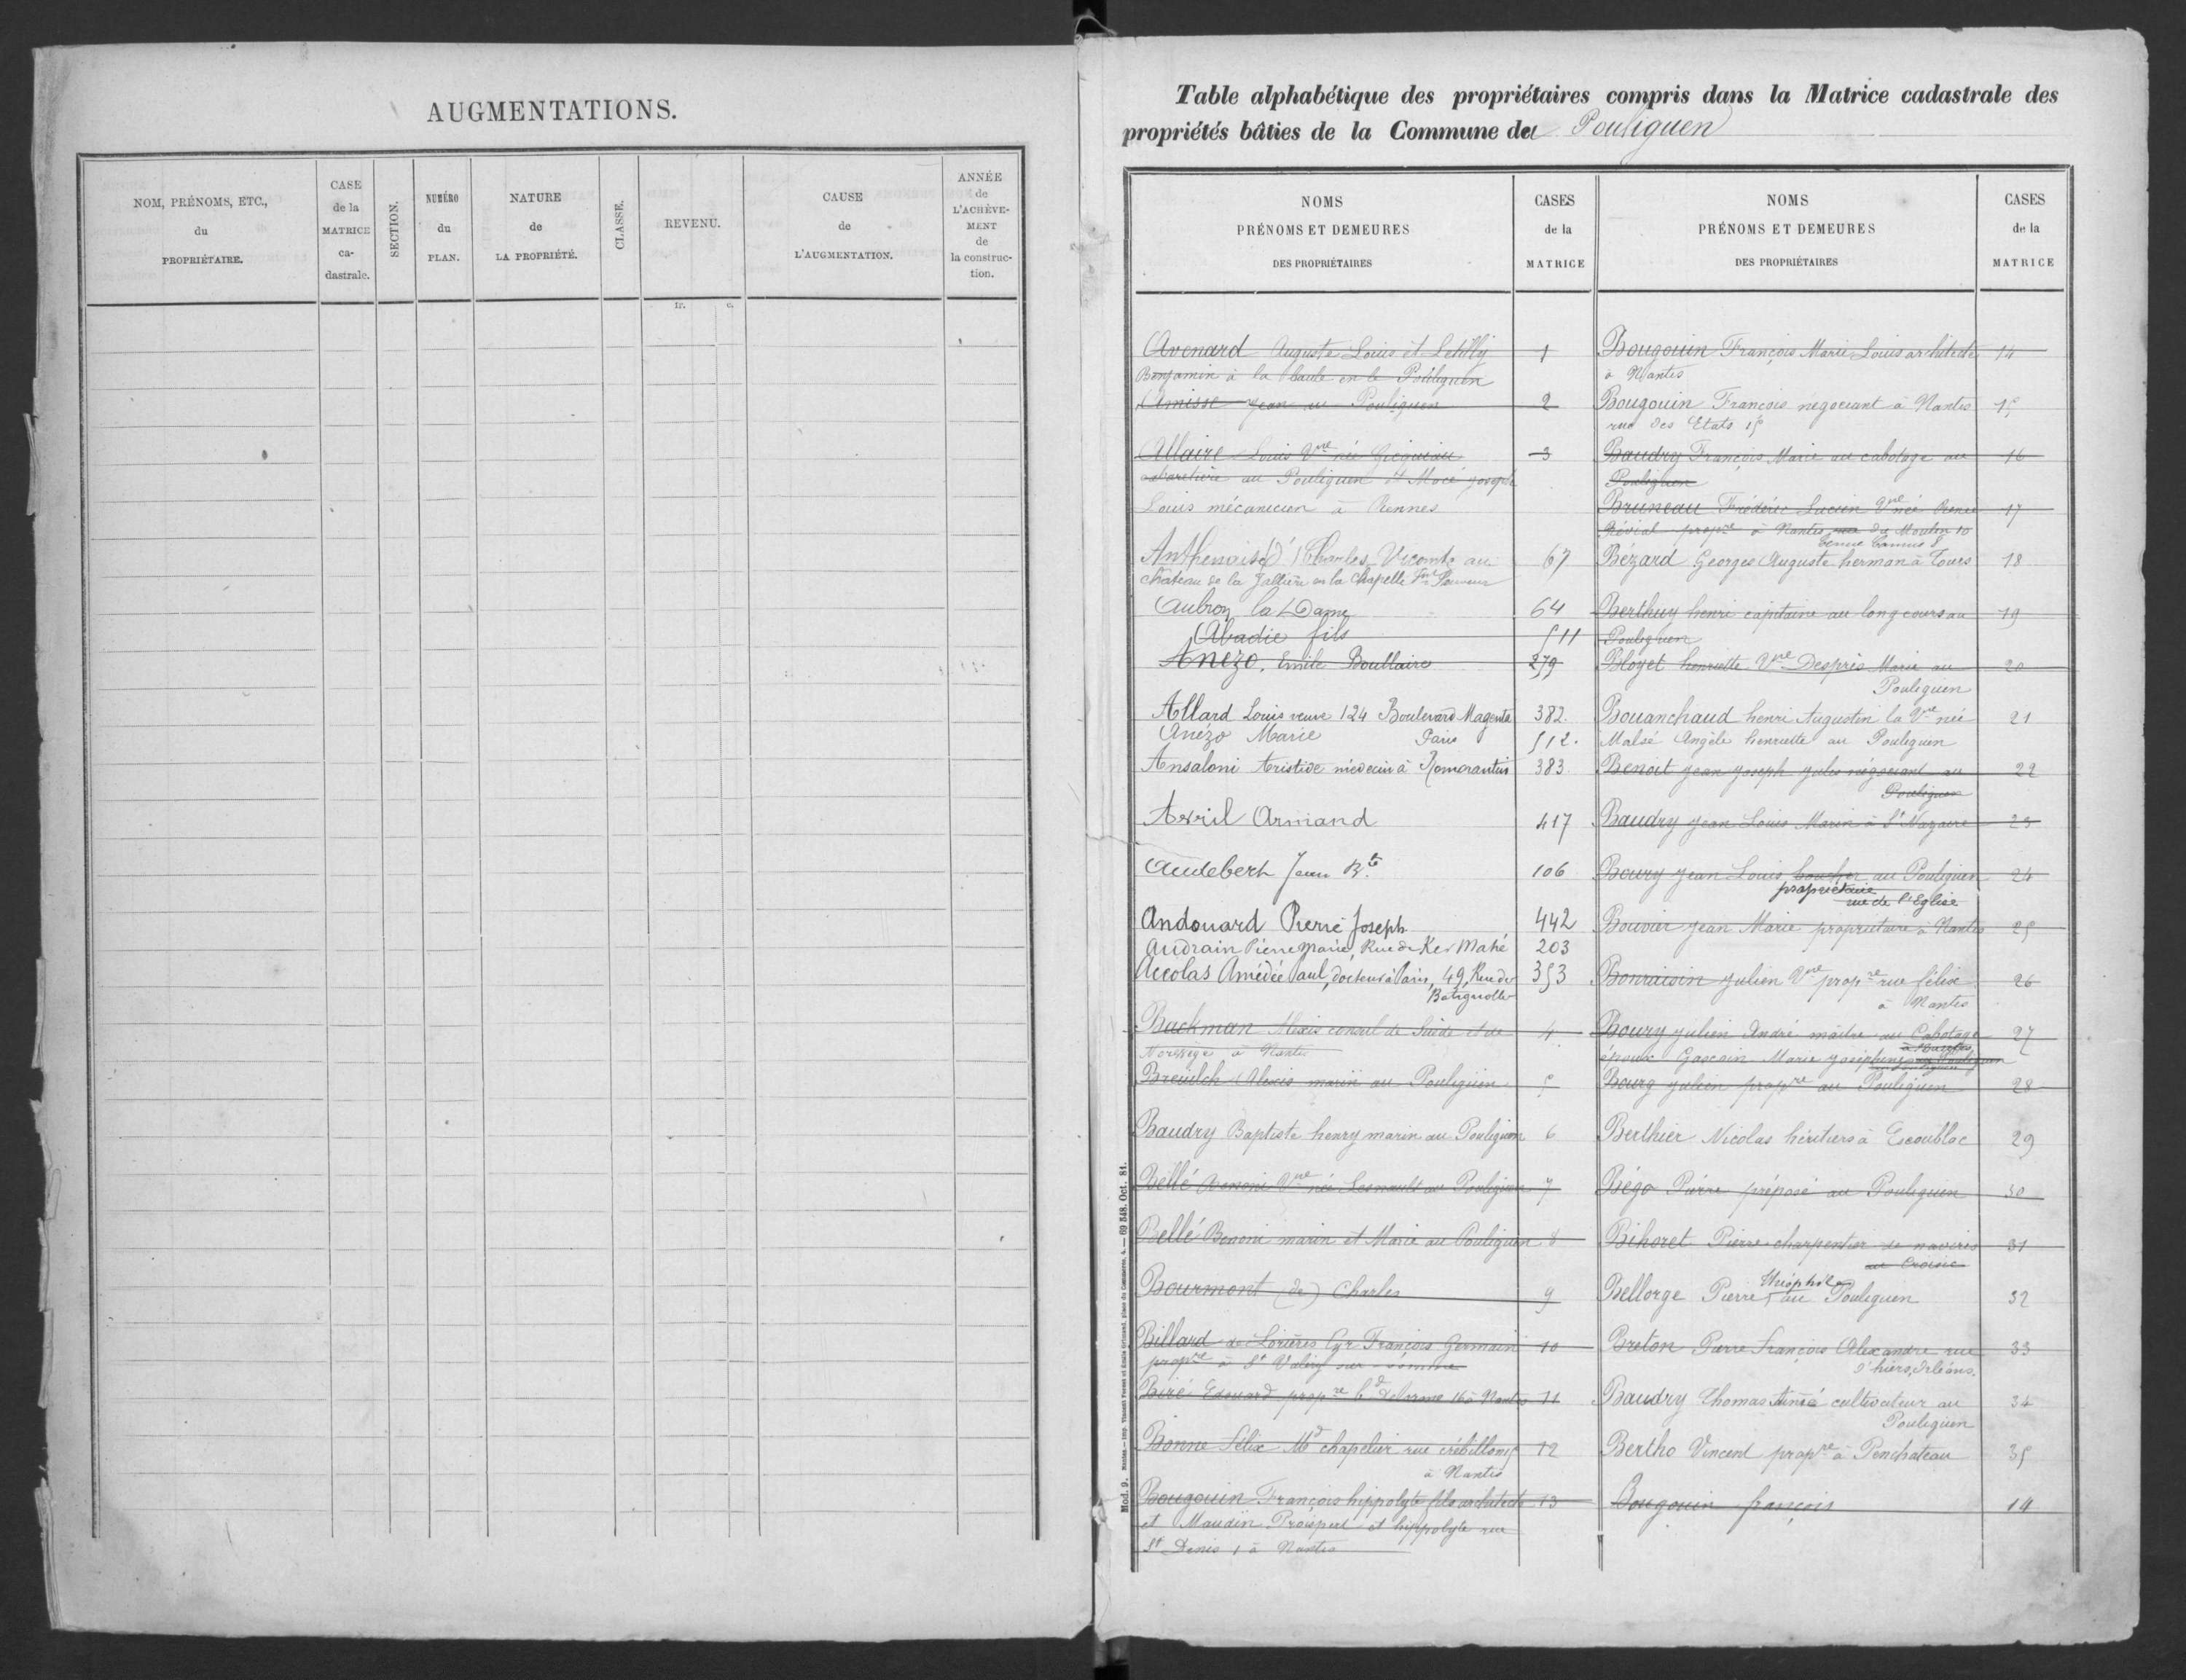 AUGMENTATIONS.
NOM, PRÉNOMS, ETC.,
du
PROPRIÉTAIRE.
CASE
de la
MATRICE
ca-
dastrale.
SECTION.
NUMÉRO
du
PLAN.
NATURE
de
LA PROPRIÉTÉ.
CLASSE.
REVENU.
CAUSE
de
L'AUGMENTATION.
ANNÉE
de
L'ACHÈVE-
MENT
de
la construc-
tion.
fr. c.
Table alphabétique des propriétaires compris dans la Matrice cadastrale des
propriétés bâties de la Commune du Pouliguen
NOMS
PRÉNOMS ET DEMEURES
DES PROPRIÉTAIRES
CASES
de la
MATRICE
Avenard Auguste Louis et Letilly 1
Benjamin à la baule en le Pouliguen
Amisse Jean au Pouliguen 2
Allaire Louis Vve née 3
au Pouliguen et Macé Joseph
Louis mécanicien à Rennes
Anthenaise (d') Charles Vicomte au 67
château de la Jallière en la Chapelle
Aubron la Dame 64
Abadie fils 511
Anézo, Emile Boullaire 279
Allard Louis veuve 124 Boulevard Magenta 382.
Anézo Marie Paris 512.
Ansaloni Aristide médecin à Romorantin 383.
Avril Armand 417
Audebert Jean Bte 106
Andouard Pierre Joseph 442
Audrain Pierre Marie, Rue de Ker Mahé 203
Accolas Amédée Paul, docteur à Paris, 49, Rue de 353
Batignolles
Backman Alexis consul de Suède et de 4
Norvège à Nantes
Breuilch Alexis marin au Pouliguen 5
Baudry Baptiste henry marin au Pouliguen 6
Bellé Vve née Lesnault au Pouliguen 7
Bellé Benoni marin et Marie au Pouliguen 8
Bourmont (de) Charles 9
Billard de Lorières Cyr François Germain 10
propre à St Valery sur somme
Biré Edouard propre bd Delorme 16 à Nantes 11
Bonne Félix Md chapelier rue crébillon 12
à Nantes
Bougouin François hippolyte fils architecte 13
et Maudin Prosper et hippolyte rue
St Denis 1 à Nantes
NOMS
PRÉNOMS ET DEMEURES
DES PROPRIÉTAIRES
CASES
de la
MATRICE
Bougouin François Marie Louis architecte 14
à Nantes
Bougouin François négociant à Nantes 15
rue des Etats 15
Baudry François Marie au cabotage au 16
Pouliguen
Bruneau Frédéric Lucien Vve née 17
propre à Nantes rue du Moulin 10
Bézard Georges Auguste herman à Tours 18
Berthuy henri capitaine au long cours au 19
Pouliguen
Bloyet henriette Vve Després Marie au 20
Pouliguen
Bouanchaud henri Augustin la Vve née 21
Malsé Angèle henriette au Pouliguen
Benoit Jean Joseph Jules négociant au 22
Pouliguen
Baudry Jean Louis Marin à St Nazaire 23
Boury Jean Louis boucher au Pouliguen 24
propriétaire
rue de l'Eglise
Bouvier Jean Marie propriétaire à Nantes 25
Bonraisin Julien Vve propre rue félix 26
à Nantes
Boury Julien André maître au Cabotage 27
époux Gascoin Marie Joséphine au Pouliguen
Bourg Julien propre au Pouliguen 28
Berthier Nicolas héritiers à Escoublac 29
Bégo Pierre préposé au Pouliguen 30
Bihoret Pierre charpentier de navires 31
au Croisic
Théophile
Bellorge Pierre, au Pouliguen 32
Breton Pierre François Alexandre rue 33
Orléans.
Baudry Thomas Aimé cultivateur au 34
Pouliguen
Bertho Vincent propre à Penchateau 35
Bougouin françois 14
Mod. 9. Nantes.— Imp. Vincent Forest et Émile Grimaud, place du Commerce, 4.— 69 348. Oct. 81.